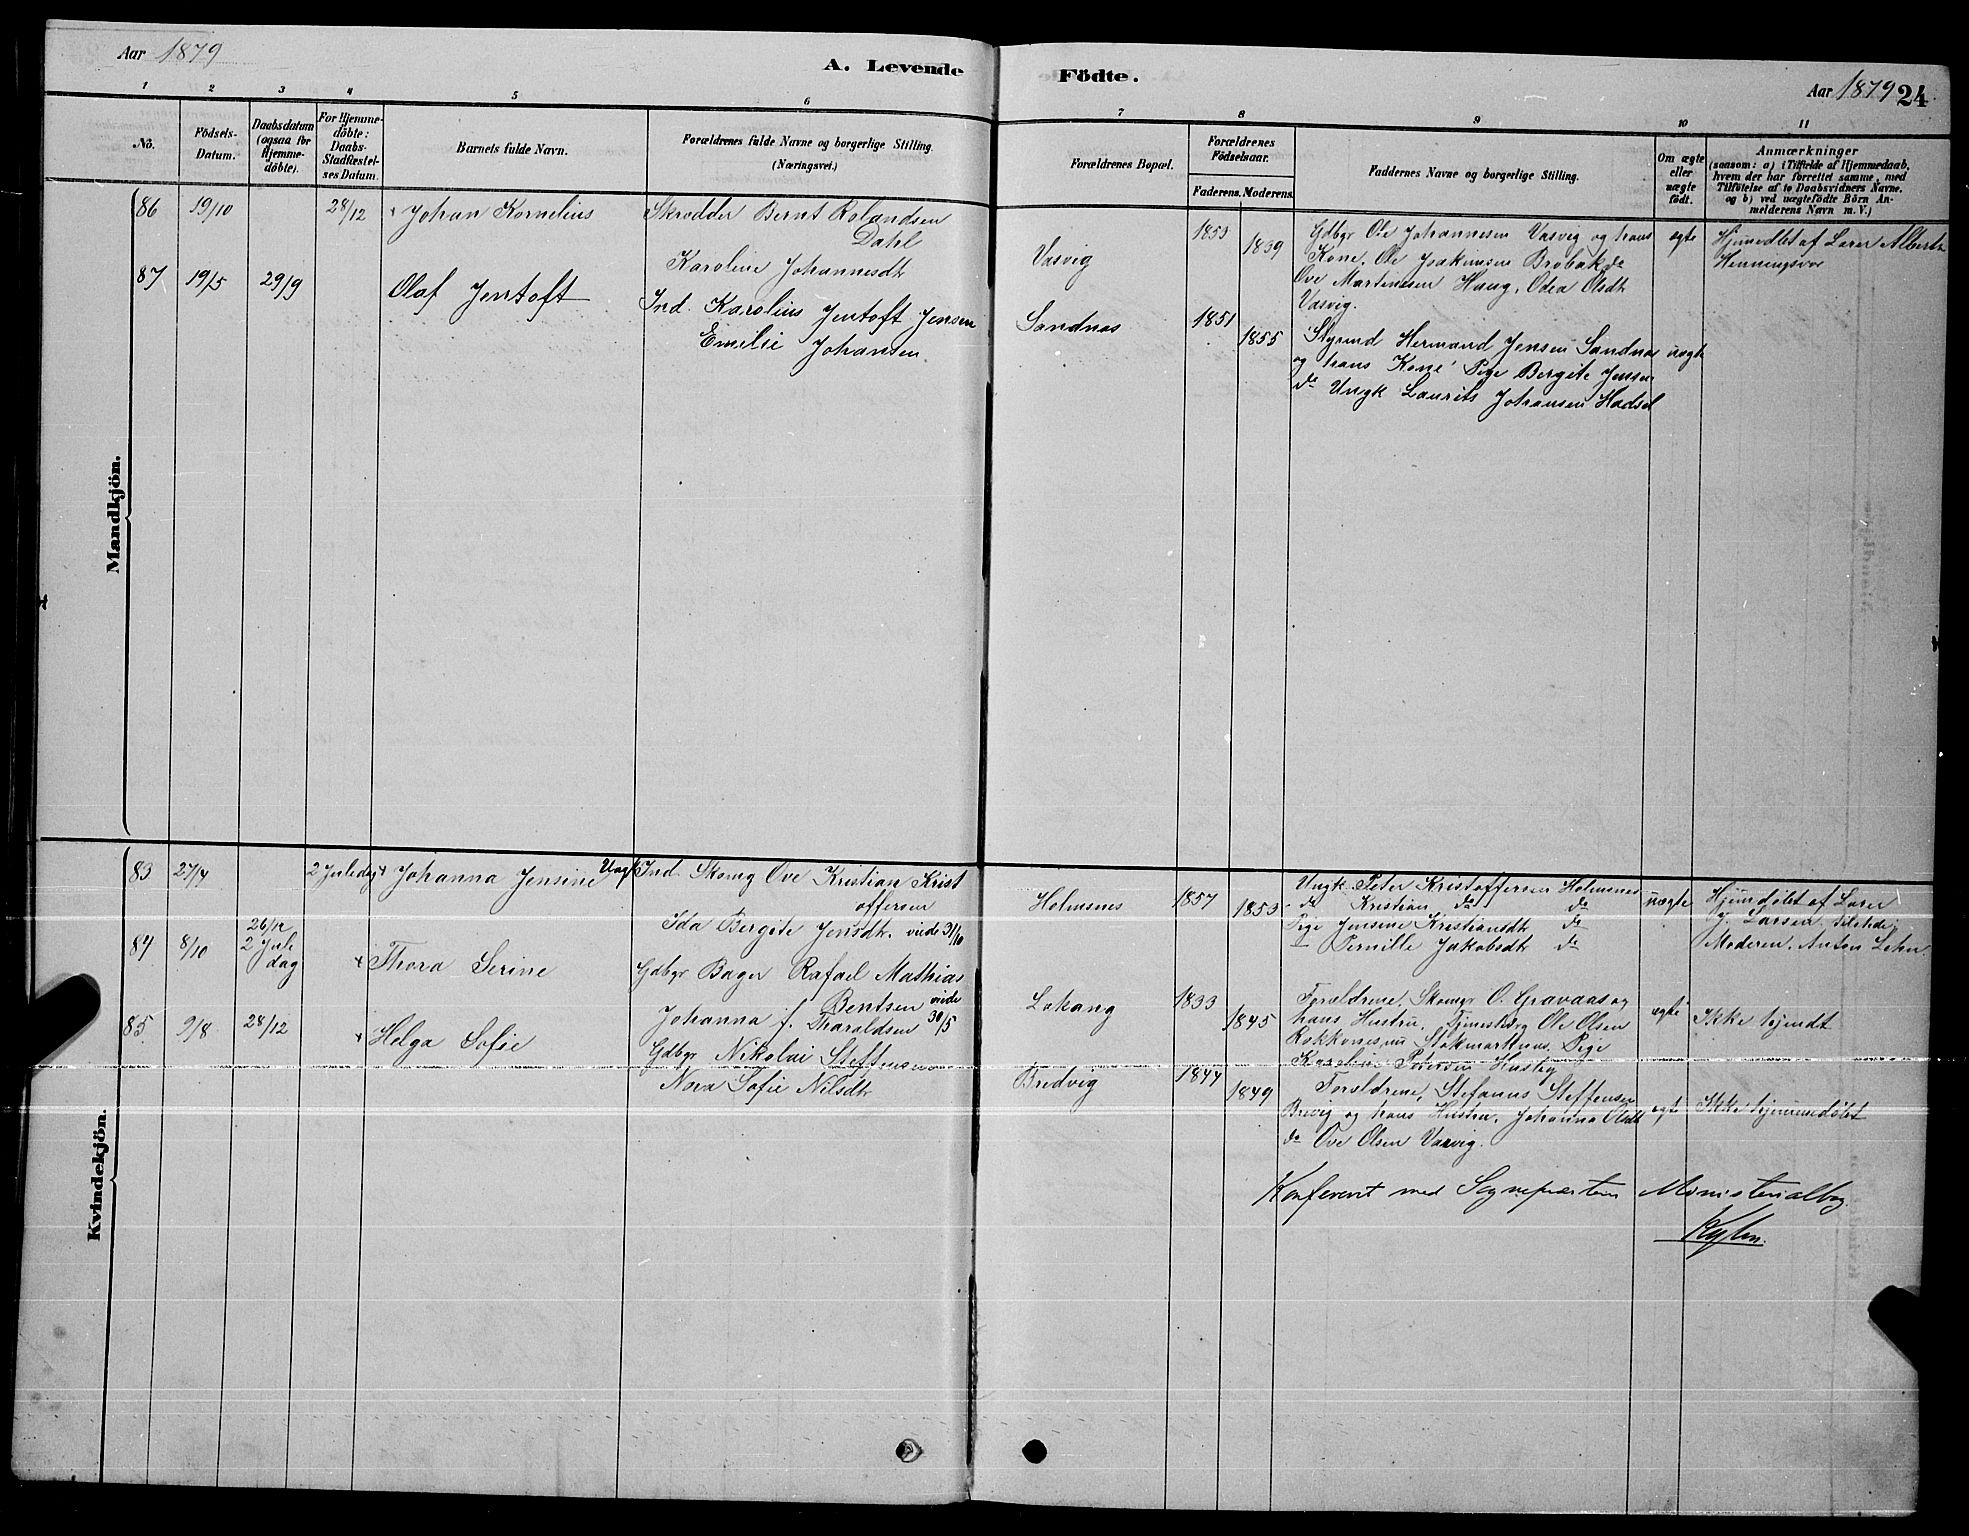 Aar 1879
A. Levende Födte.
Aar 1879 24
1 2 3 4 5 6 7 8 9 10 11
No.
Födsels-Datum.
Daabsdatum (ogsaa for Hjemme-döbte).
For Hjemme-döbte: Daabs-Stadfæstel-ses Datum.
Barnets fulde Navn.
Forældrenes fulde Navne og borgerlige Stilling. (Næringsvei.)
Forældrenes Bopæl.
Forældrenes Födselsaar.
Faderens. Moderens.
Faddernes Navne og borgerlige Stilling.
Om ægte eller uægte født.
Anmærkninger
(saasom: a) i Tilfælde af Hjemmedaab,
hvem der har forrettet samme, med
Tilföielse af to Daabsvidners Navne.
og b) ved uægtefödte Börn An-
melderens Navn m. V.)
Mandkjön.
86 19/10 28/12 Johan Kornelius
Skrædder Bernt Rolandsen
Dahl
Karoline Johannesdt
Vasvig
1853
1839
Gdbgr Ole Johannesen Vasvig og hans
Kone, Ole Joakimsen Brobak do
Ove Martinesen Haug, Odea Olsdt
Vasvig.
ægte
Hjemedbt af Lærer Alberts
Henningsvær
87 19/5 29/9
Olaf Jentoft
Ind. Karolius Jentoft Jensen
Emelie Johansen.
Sandnæs
1851
1855
Skyrmd Hermand Jensen Sandnæs
og hans Kone Pige Bergite Jensen
do Ungk Laurits Johansen Hadsel
uægte
Kvindekjön.
83 27/4 2 Juledag Johanna Jensine
Ungk Ind. Skomg Ove Kristian Krist
offersen
Ida Bergite Jensdt. viede 31/10
Holmsnes
1857
1853
Ungk Peter Kristoffersen Holmsnes
do Kristian do do
Pige Jensine Kristiansdt do
" Pernille Jakobsdt do
uægte
Hjemdøbt af Lærer
J. Larsen. Tilstede:
Moderen. Anton Lehn.
84 8/10
26/12
2 Jule
dag
Thora Serine
Gdbgr Bager Rafael Mathias
Bentsen viede
Johanna f. Tharaldsen 30/5
Lokang
1833
1845
Forældrene, Skomgr O. Gravaas og
hans Hustru, Tjeneskarg Ole Olsen
Rokkenesmo Stokmarknæs. Pige
Karoline Petersen Husby
ægte
Ikke hjemdt
85. 9/8 28/12
Helga Sofie
Gdbgr Nikolai Steffensen
Nora Sofie Nilsdt
Bredvig
1844
1849
Forældrene, Stefanus Steffensen
Brevig og hans Hustru, Johanna Olsdt
do Ove Olsen Vasvig.
ægte
Ikke hjemmedøbt
Konfereret med Sognepræstens Ministerialbog